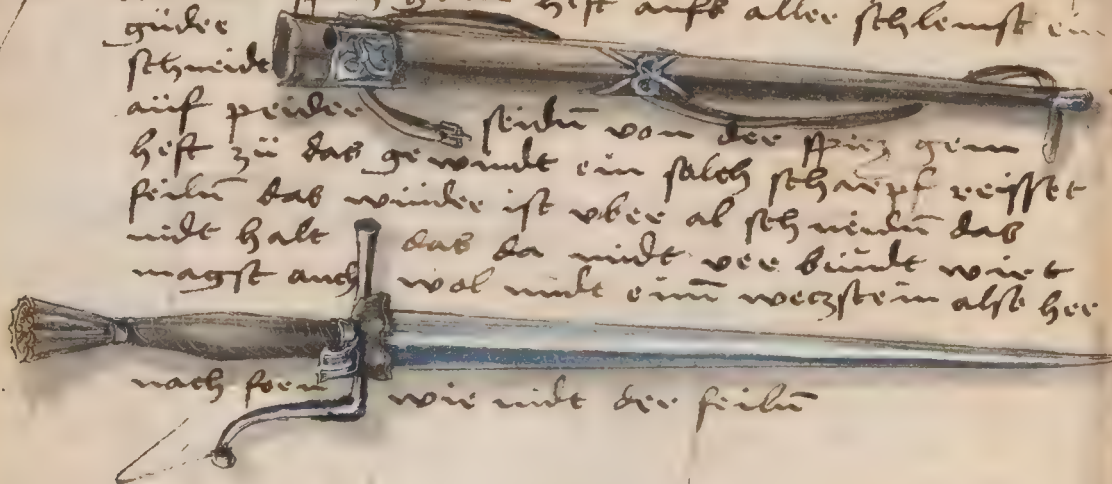 heft auff aller schlemst ein
güder
schneidt
auff peider seidn̄ von der spicz gein
heft zü das gewindt ein solch scharpf reisset
feiln̄ das wunder ist vber al schneidn̄ das
nidt halt das da midt ver bündt wirt
magst auch wol midt einn̄ weczstein also her
nach foen wie midt der feiln̄